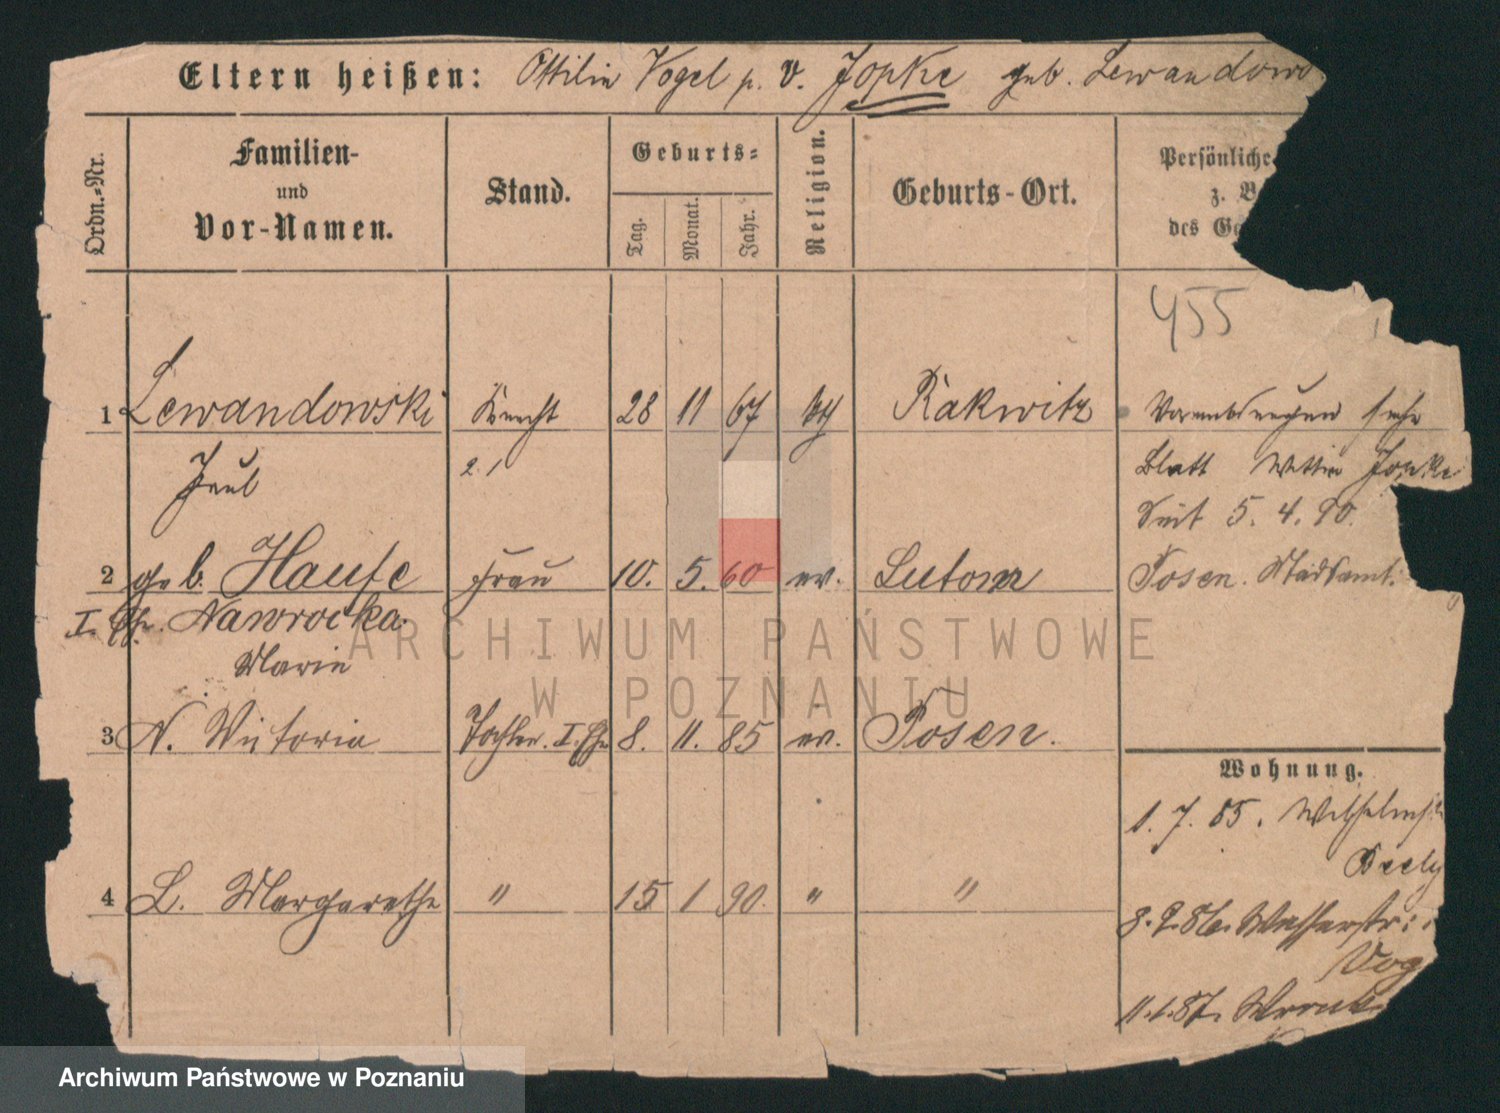 Eltern heißen: Ottilie Vogel p. v. Jopke geb. Lewandows
Ordn.-Nr.
Familien-
und
Vor-Namen.
Stand.
Geburts-
Tag.
Monat.
Jahr.
Religion.
Geburts-Ort.
Persönliche
z. B
des Ge
455
1 Lewandowski Knecht 28 11 67 Rakwitz Vorambringen siehe
Paul 2.1 Blatt Jopke
Seit 5. 4. 90.
2 geb. Haufe Frau 10. 5. 60 ev. Lutom Posen. Stadtamt.
I. Ehe. Nawrocka.
Marie
3 N. Victoria Tochter. I. Ehe 8. 11. 85 ev. Posen.
Wohnung.
1. 7. 85. Wilhelmst
4 L. Margarethe " 15 1 90. " "
8. 9. 86. Wasserstr:
Vog
11. 1. 87. Wronk
ARCHIWUM PAŃSTWOWE
W POZNANIU
Archiwum Państwowe w Poznaniu